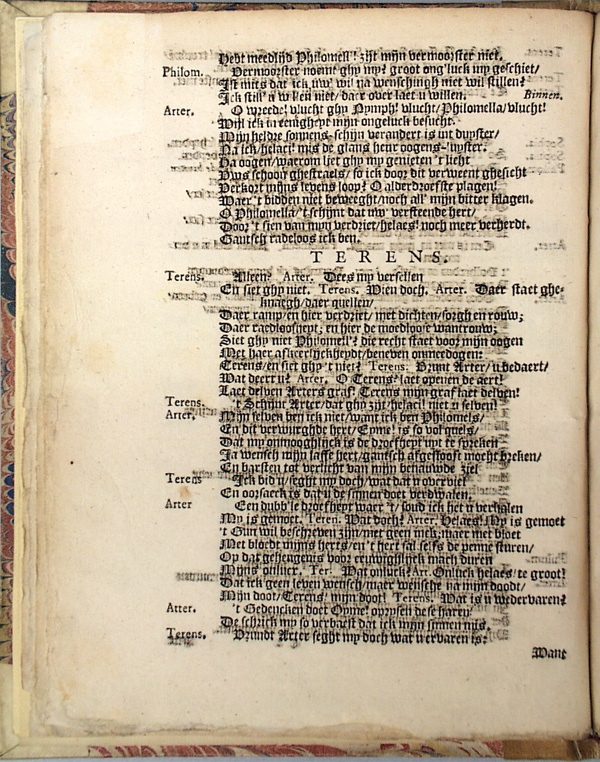 Hebt meedlijd Philomell'! zijt mijn vermoorster niet.
Philom. Vermoorster noemt ghy my? groot ong'luck my geschiet/
Ist mits dat ick uw' wil na wensch niet wil stillen?
Ick still' u willen niet/ daer over laet u willen. Binnen.
Arter. O wreede! vlucht ghy Nymph! vlucht/ Philomella/ vlucht!
Wijl ick in eenigheyt mijn ongeluck besucht.
Mijn heldre sonnens-schijn verandert is in't duyster/
Na ick/ helaci! mis de glans heur oogens-luyster.
Ha oogen/ waerom liet ghy my genieten 't liecht
Uws schoon ghestraels/ so ick door dit verweent ghesicht
Verkort mijns levens loop? O alderdroefste plagen!
Waer 't bidden niet beweeght/ noch all' mijn bitter klagen.
O Philomella/ 't schijnt dat uw' versteende hert/
Door 't sien van mijn verdriet/ helaes! noch meer verherdt.
Gantsch radeloos ick ben.
TERENS.
Terens. Alleen? Arter. Dees my versellen
En siet ghy niet. Terens. Wien doch. Arter. Daer staet ghe-
knaegh/ daer quellen/
Daer ramp/ en hier verdriet/ met dichten/ sorgh en rouw;
Daer raedloosheyt; en hier de moedloose wantrouw;
Siet ghy niet Philomell'? die recht staet voor mijn oogen
Met haer afkeerlijckheydt/ beneven onmeedogen:
Terens/ en siet ghy 't niet? Terens. Vrint Arter/ u bedaert/
Wat deert u? Arter. O Terens! laet openen de aert!
Laet delven Arters graf! Terens mijn graf laet delven!
Terens. 't Schijnt Arter/ dat ghy zijt/ helaci! niet u selven!
Arter. Mijn selven ben ick niet/ want ick ben Philomels/
En dit verwurghde hert/ Eyme! is so vol quels/
Dat my onmooghlijck is de droefheyt uyt te spreken
Ja wensch mijn lasse hert/ gantsch afgeslooft mocht breken/
En barsten tot verlicht van mijn benauwde ziel
Terens Ick bid u/ seght my doch/ wat dat u overviel
En oorsaeck is dat u de sinnen doet verdwalen.
Arter Een dubb'le droefheyt waer 't/ soud ick het u verhalen
My is gemoet. Teren. Wat doch? Arter. Helaes! My is gemoet
't Gun wil beschreven zijn/ met geen inck/ maer met bloet
Met bloedt mijns herts/ en 't hert sal selfs de penne sturen/
Op dat gehengenis voor eeuwighlijck mach duren
Mijns onluck. Ter: Wat onluck? Art. Onluck helaes/ te groot!
Dat ick geen leven wensch/ maer wensche na mijn doodt/
Mijn doot/ Terens! mijn doot! Terens. Wat is u wedervaren?
Atter. 't Gedencken doet Eyme! oprysen dese hayren
De schrick my so verbaest dat ick mijn sinnen mis.
Terens. Vrindt Arter seght my doch wat u ervaren is:
Want